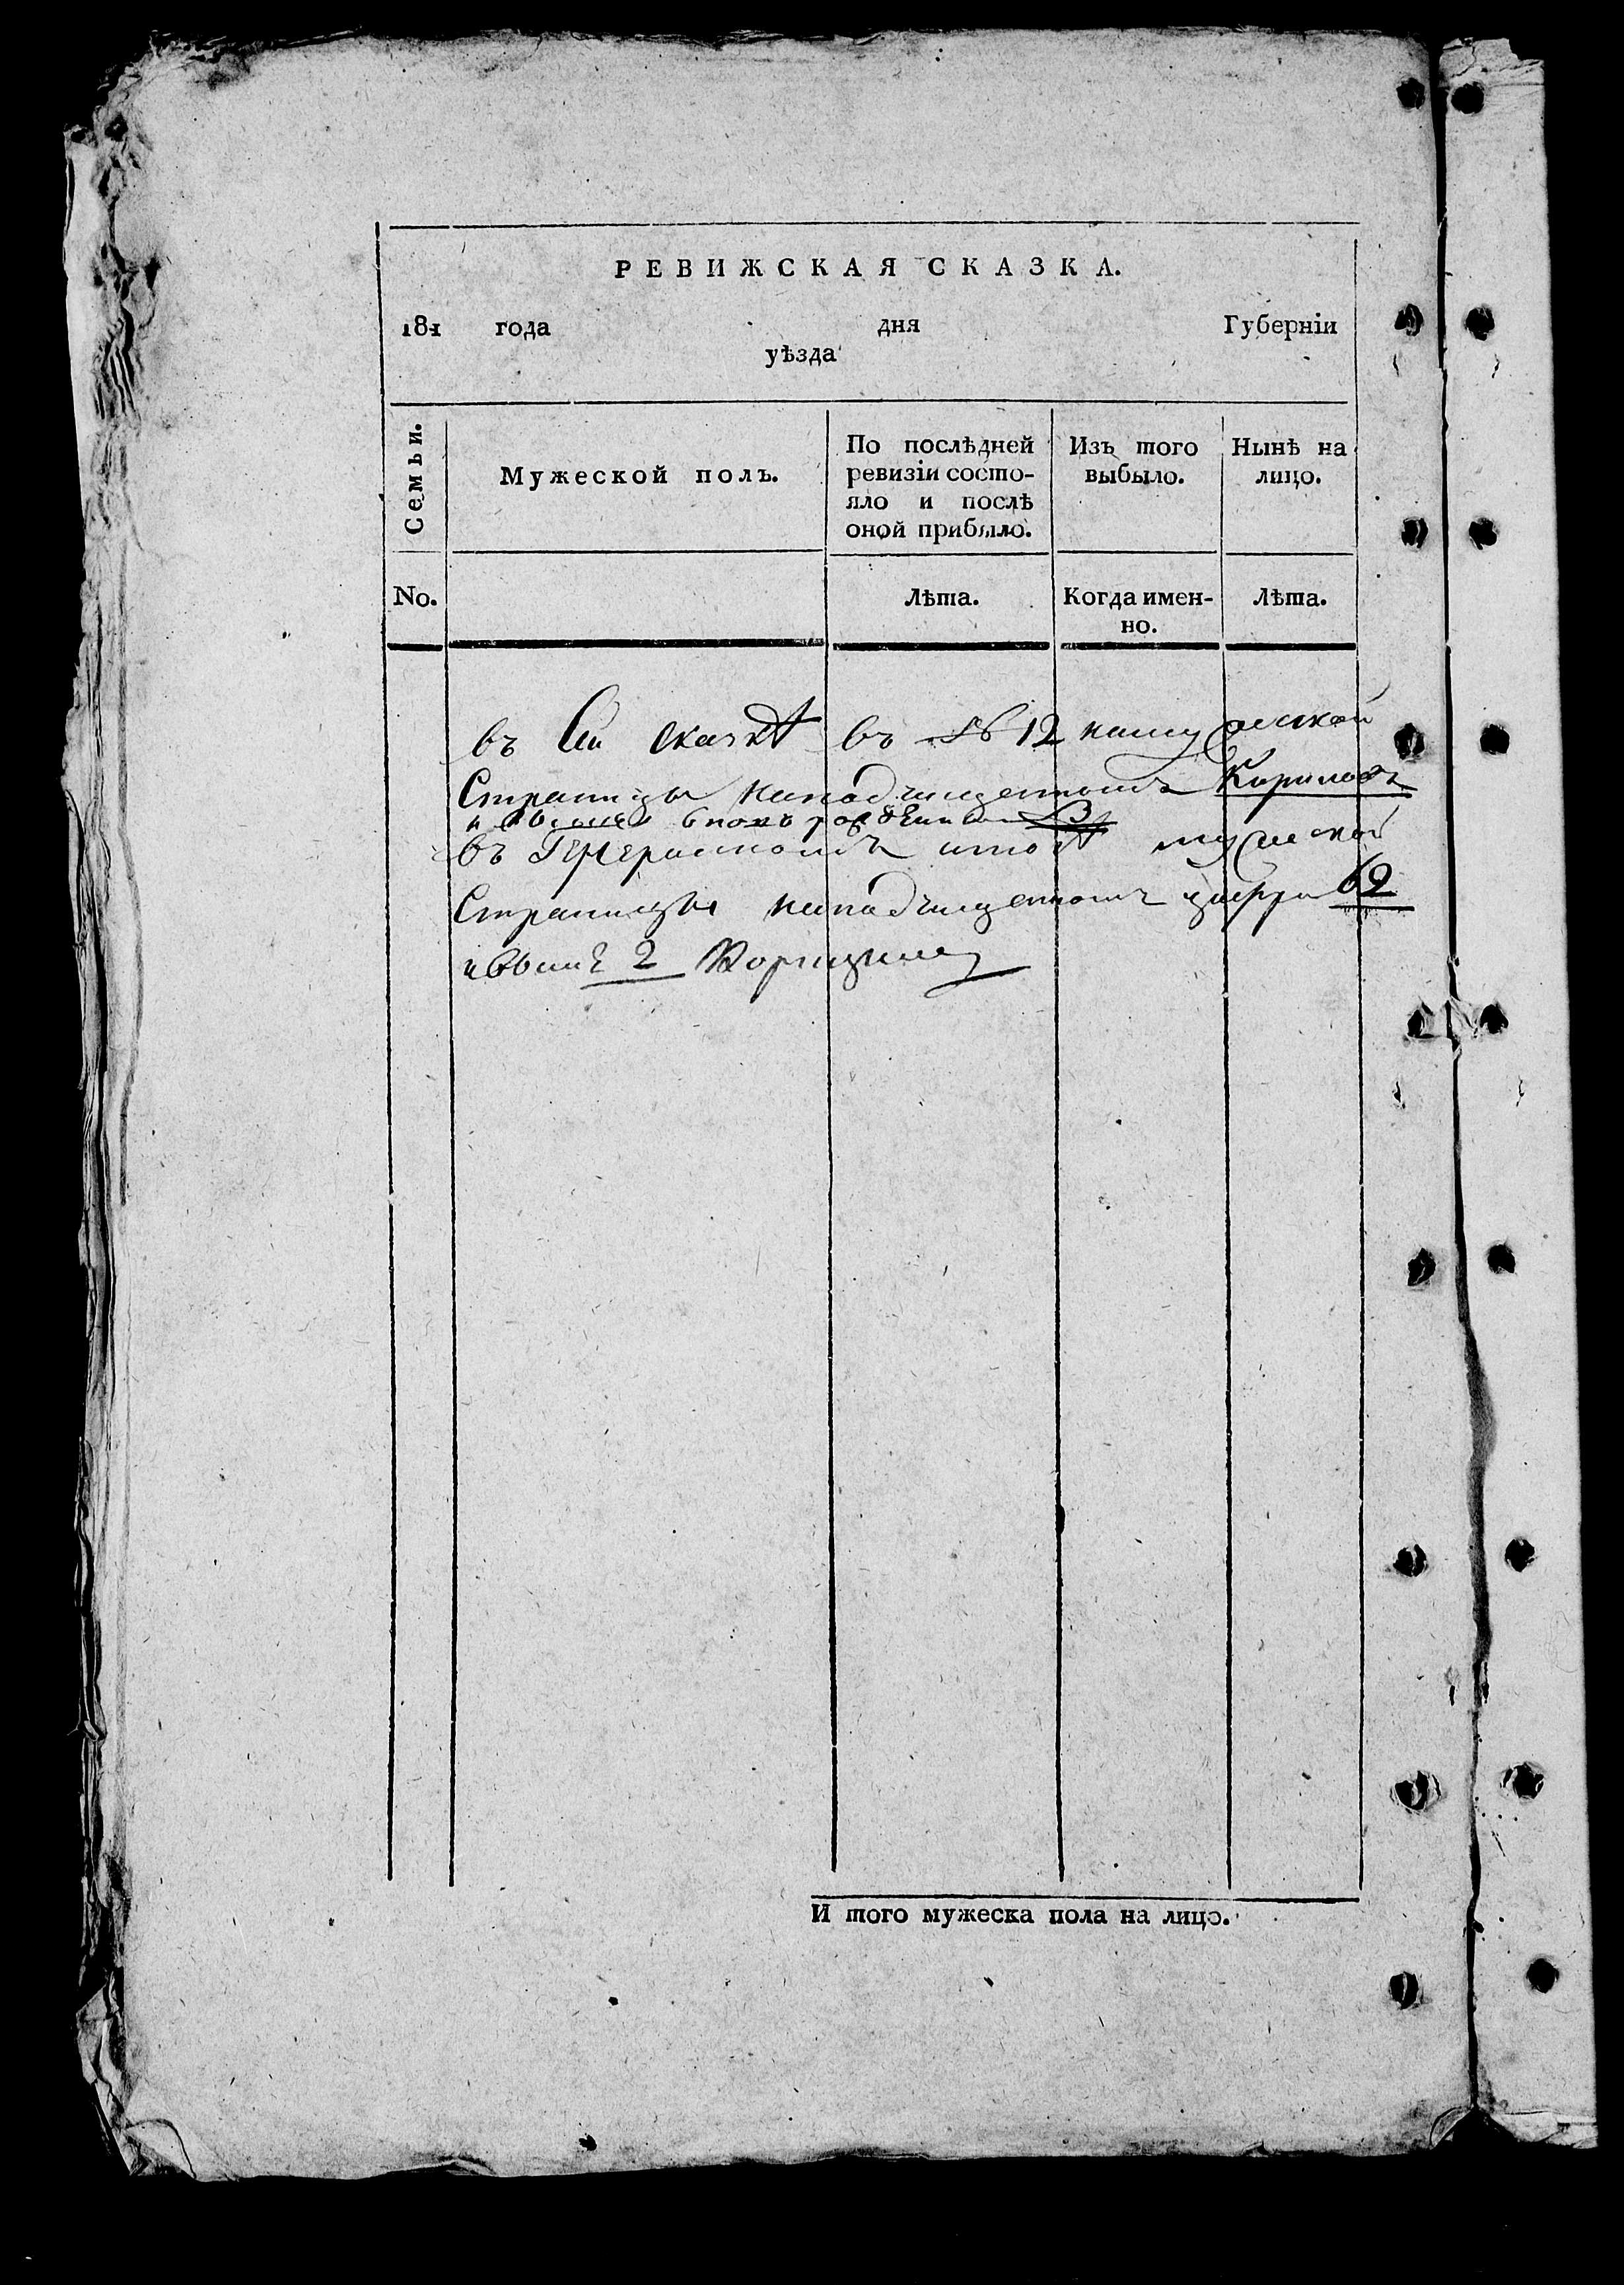 РЕВИЖСКАЯ СКАЗКА.
181 года дня Губерніи
уѣзда
Семьи.
Мужеской полъ.
По послѣдней
ревизіи состо-
яло и послѣ
оной прибыло.
Изъ того
выбыло.
Нынѣ на
лицо.
No.
Лѣта.
Когда имен-
но.
Лѣта.
въ Сей скаскѣ въ 12 на мужеской
Страницы на подчищенномъ Кириловъ
въ Генералномъ итогѣ мужеской
Страницы на подчищенномъ цыфра 62
и выше 2
И того мужеска пола на лицо.